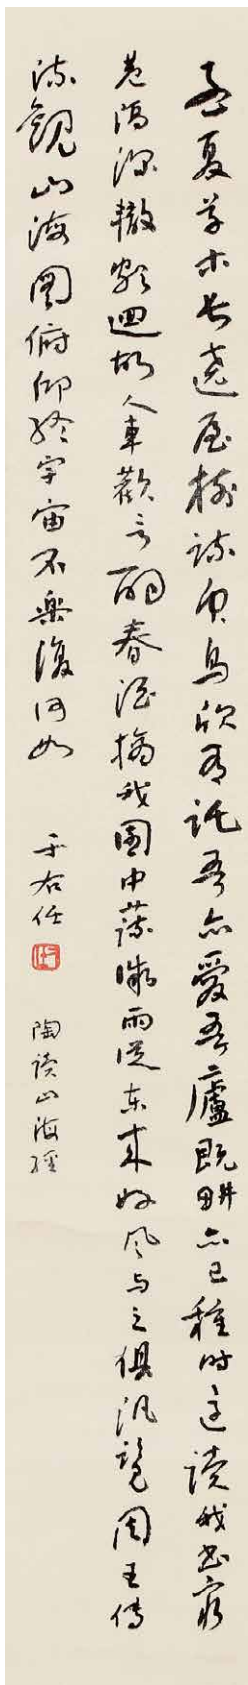 孟夏草木長遶屋樹疏衆鳥欣有託吾亦愛吾廬既耕亦已種時還讀我書窮
巷隔深轍頗迴故人車歡言酌春酒摘我園中蔬微雨從東來好風与之俱汎覽周王傳
流觀山海圖俯仰終宇宙不樂復何如
于右任
陶讀山海經